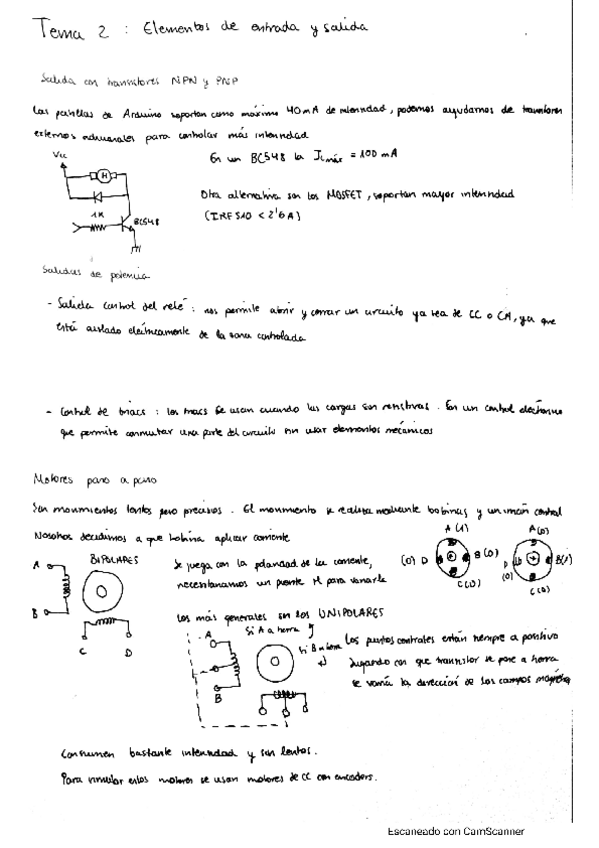 Tema 2 : Elementos de entrada y salida
Salida con transistores NPN y PNP
Las patillas de Arduino soportan como máximo 40mA de intensidad, podemos ayudarnos de transistores
externos adicionales para controlar más intensidad
Vcc
M
1K
BC548
En un BC548 la Icmáx = 100 mA
Otra alternativa son los MOSFET, soportan mayor intensidad
(IRF510 < 2'6 A)
Salidas de potencia
- Salida control del relé : nos permite abrir y cerrar un circuito ya sea de CC o CA, ya que
está aislado eléctricamente de la zona controlada
- Control de triacs : los triacs se usan cuando las cargas son resistivas. Son un control electrónico
que permite conmutar una parte del circuito sin usar elementos mecánicos
Motores paso a paso
Son movimientos lentos pero precisos. El movimiento se realiza mediante bobinas y un imán central
Nosotros decidimos a que bobina aplicar corriente
A(1)
(0) D
B(0)
C(0)
A(0)
D
(0)
B(1)
C(0)
BIPOLARES
A
B
C
D
Se juega con la polaridad de la corriente,
necesitaríamos un puente H para variarla
Los más generales son los UNIPOLARES
A
B
Si A a tierra
Si B a tierra
Los puntos centrales están siempre a positivo
Jugando con que transistor se pone a tierra
se varía la dirección de los campos
Consumen bastante intensidad y son lentos.
Para simular estos motores se usan motores de CC con encoders.
Escaneado con CamScanner